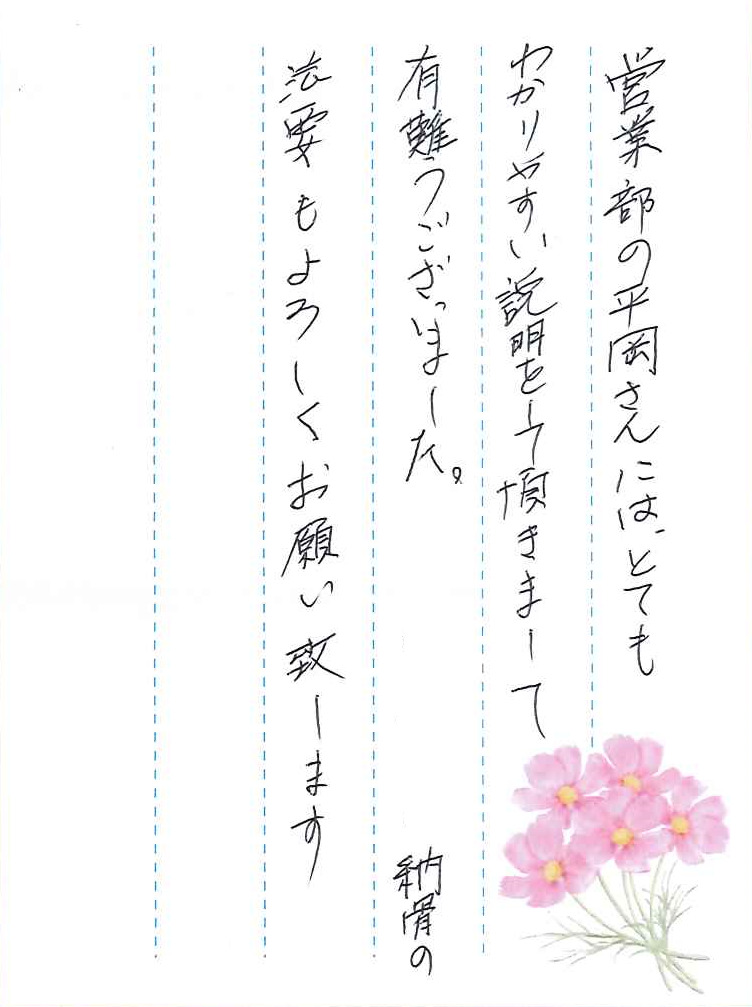 営業部の平岡さんには、とても
わかりやすい説明をして頂きまして
有難うございました。 納骨の
法要もよろしくお願い致します